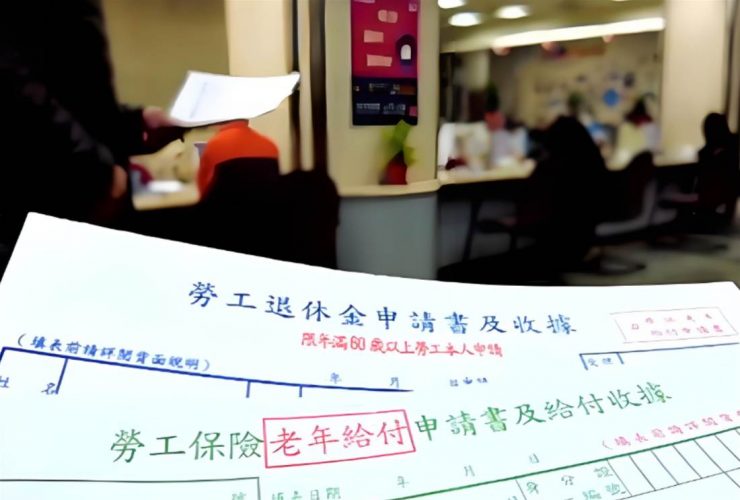 勞工退休金申請書及收據
限年滿60歲以上勞工本人申請
給付申請書
(填表前請詳閱背面說明)
姓 名
年 月
勞工保險老年給付申請書及給付收據
填表日期 年 月 日
身分證